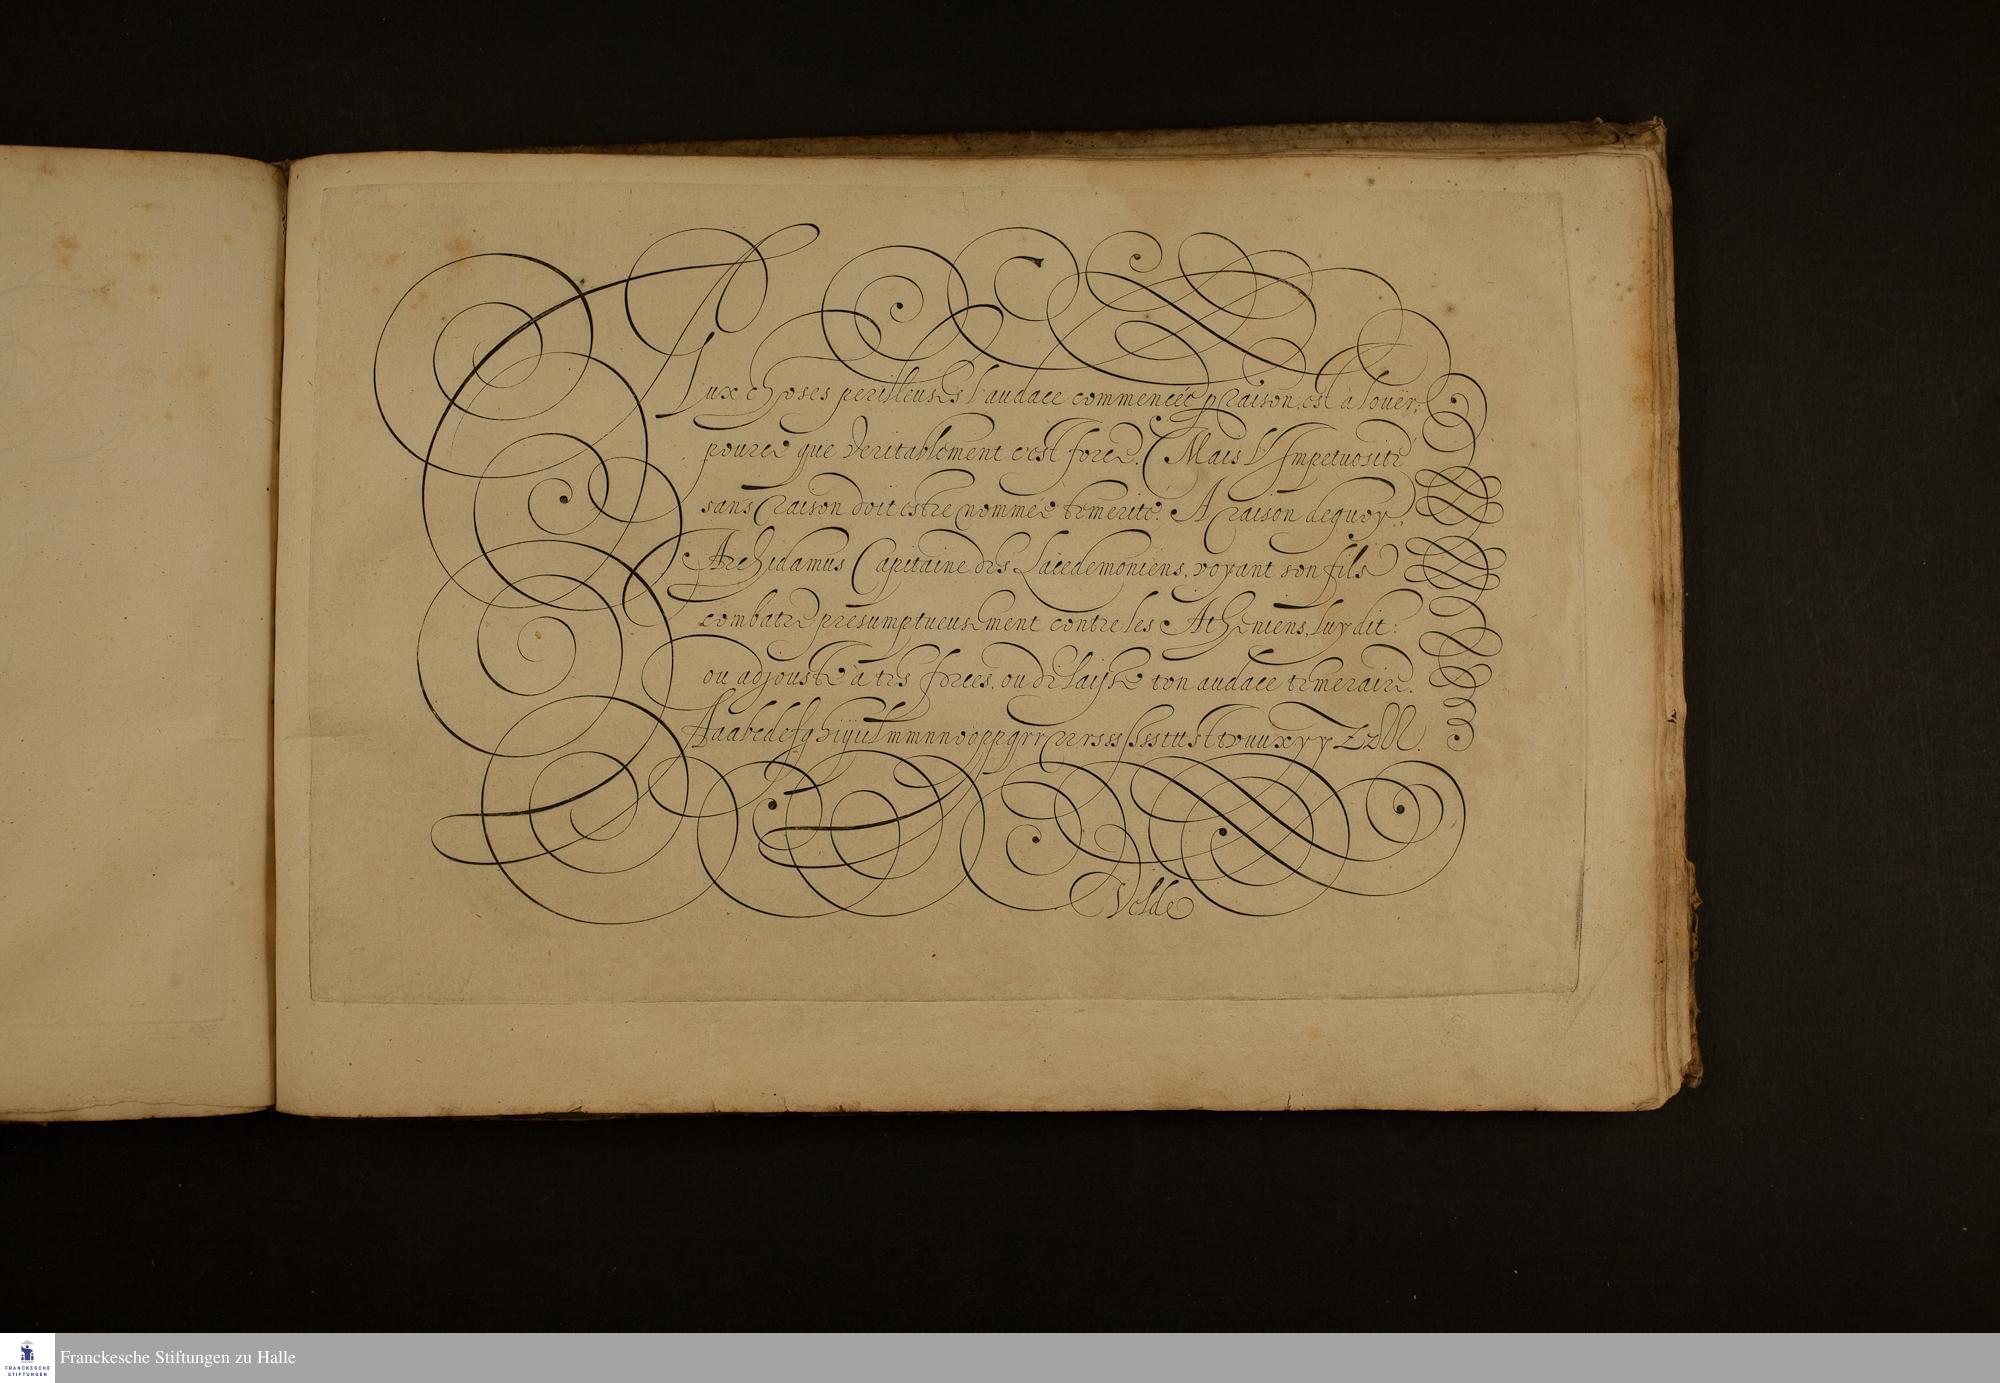 Aux choses perilleuses l'audace commencée p raison, est à louër,
pource que veritablement c'est force. Mais l'Impetuosité
sans raison doit estre nommée temerité. A raison dequoy,
Archidamus Capitaine des Lacedemoniens, voyant son fils
combatre presumptueusement contre les Atheniens, luy dit:
ou adjouste à tes forces, ou delaisse ton audace temeraire.
Velde
Franckesche Stiftungen zu Halle
FRANCKESCHE
STIFTUNGEN